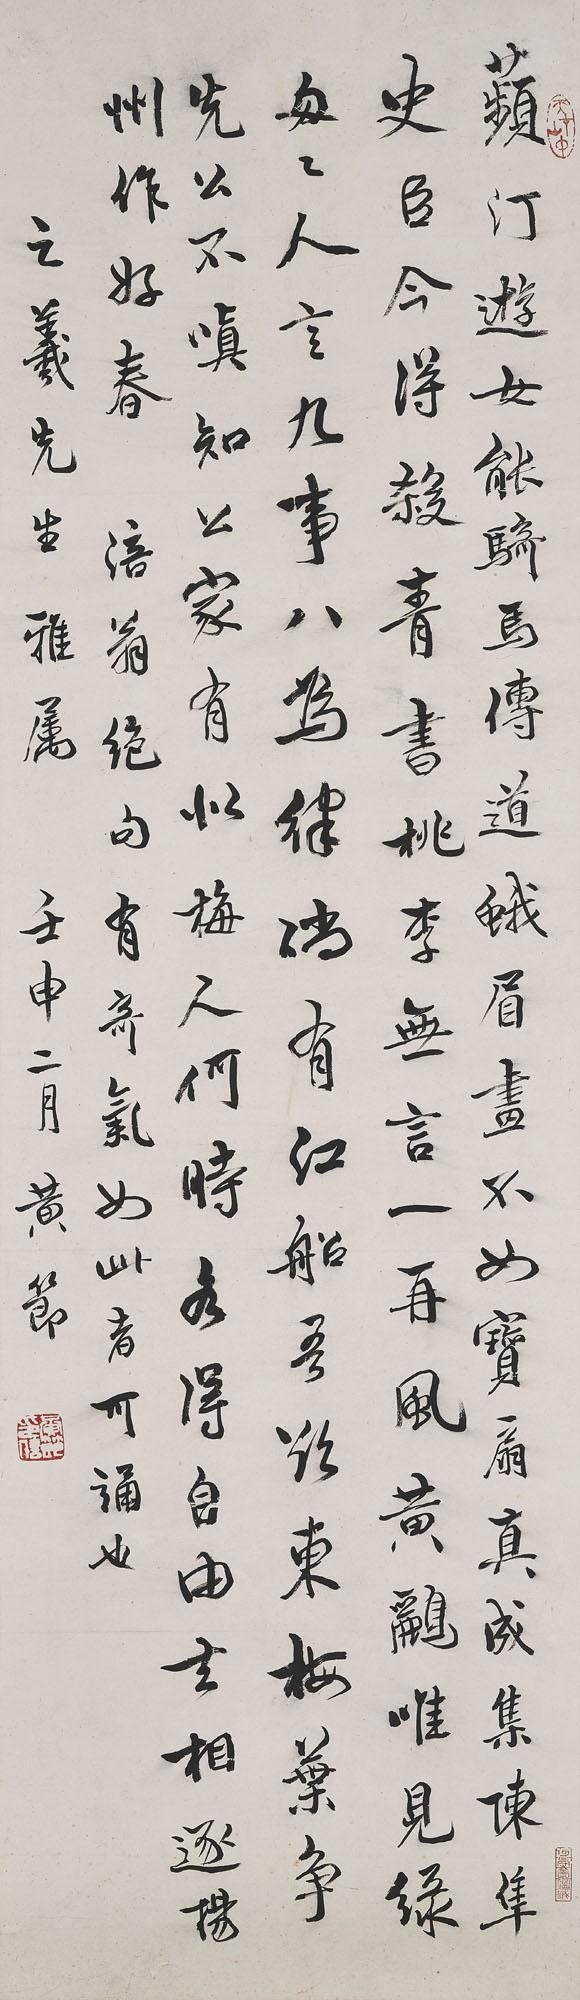 蘋汀遊女能騎馬傳道蛾眉畫不如寶扇真成集陳隼
史臣今得殺青書桃李無言一再風黃鸝唯見綠
匆匆人言九事八為律倘有江船吾欲東梅葉爭
先公不嗔知公家有似梅人何時各得自由去相逐揚
州作好春 涪翁絕句有奇氣如此者可誦也
之羲先生雅属 壬申二月 黃節